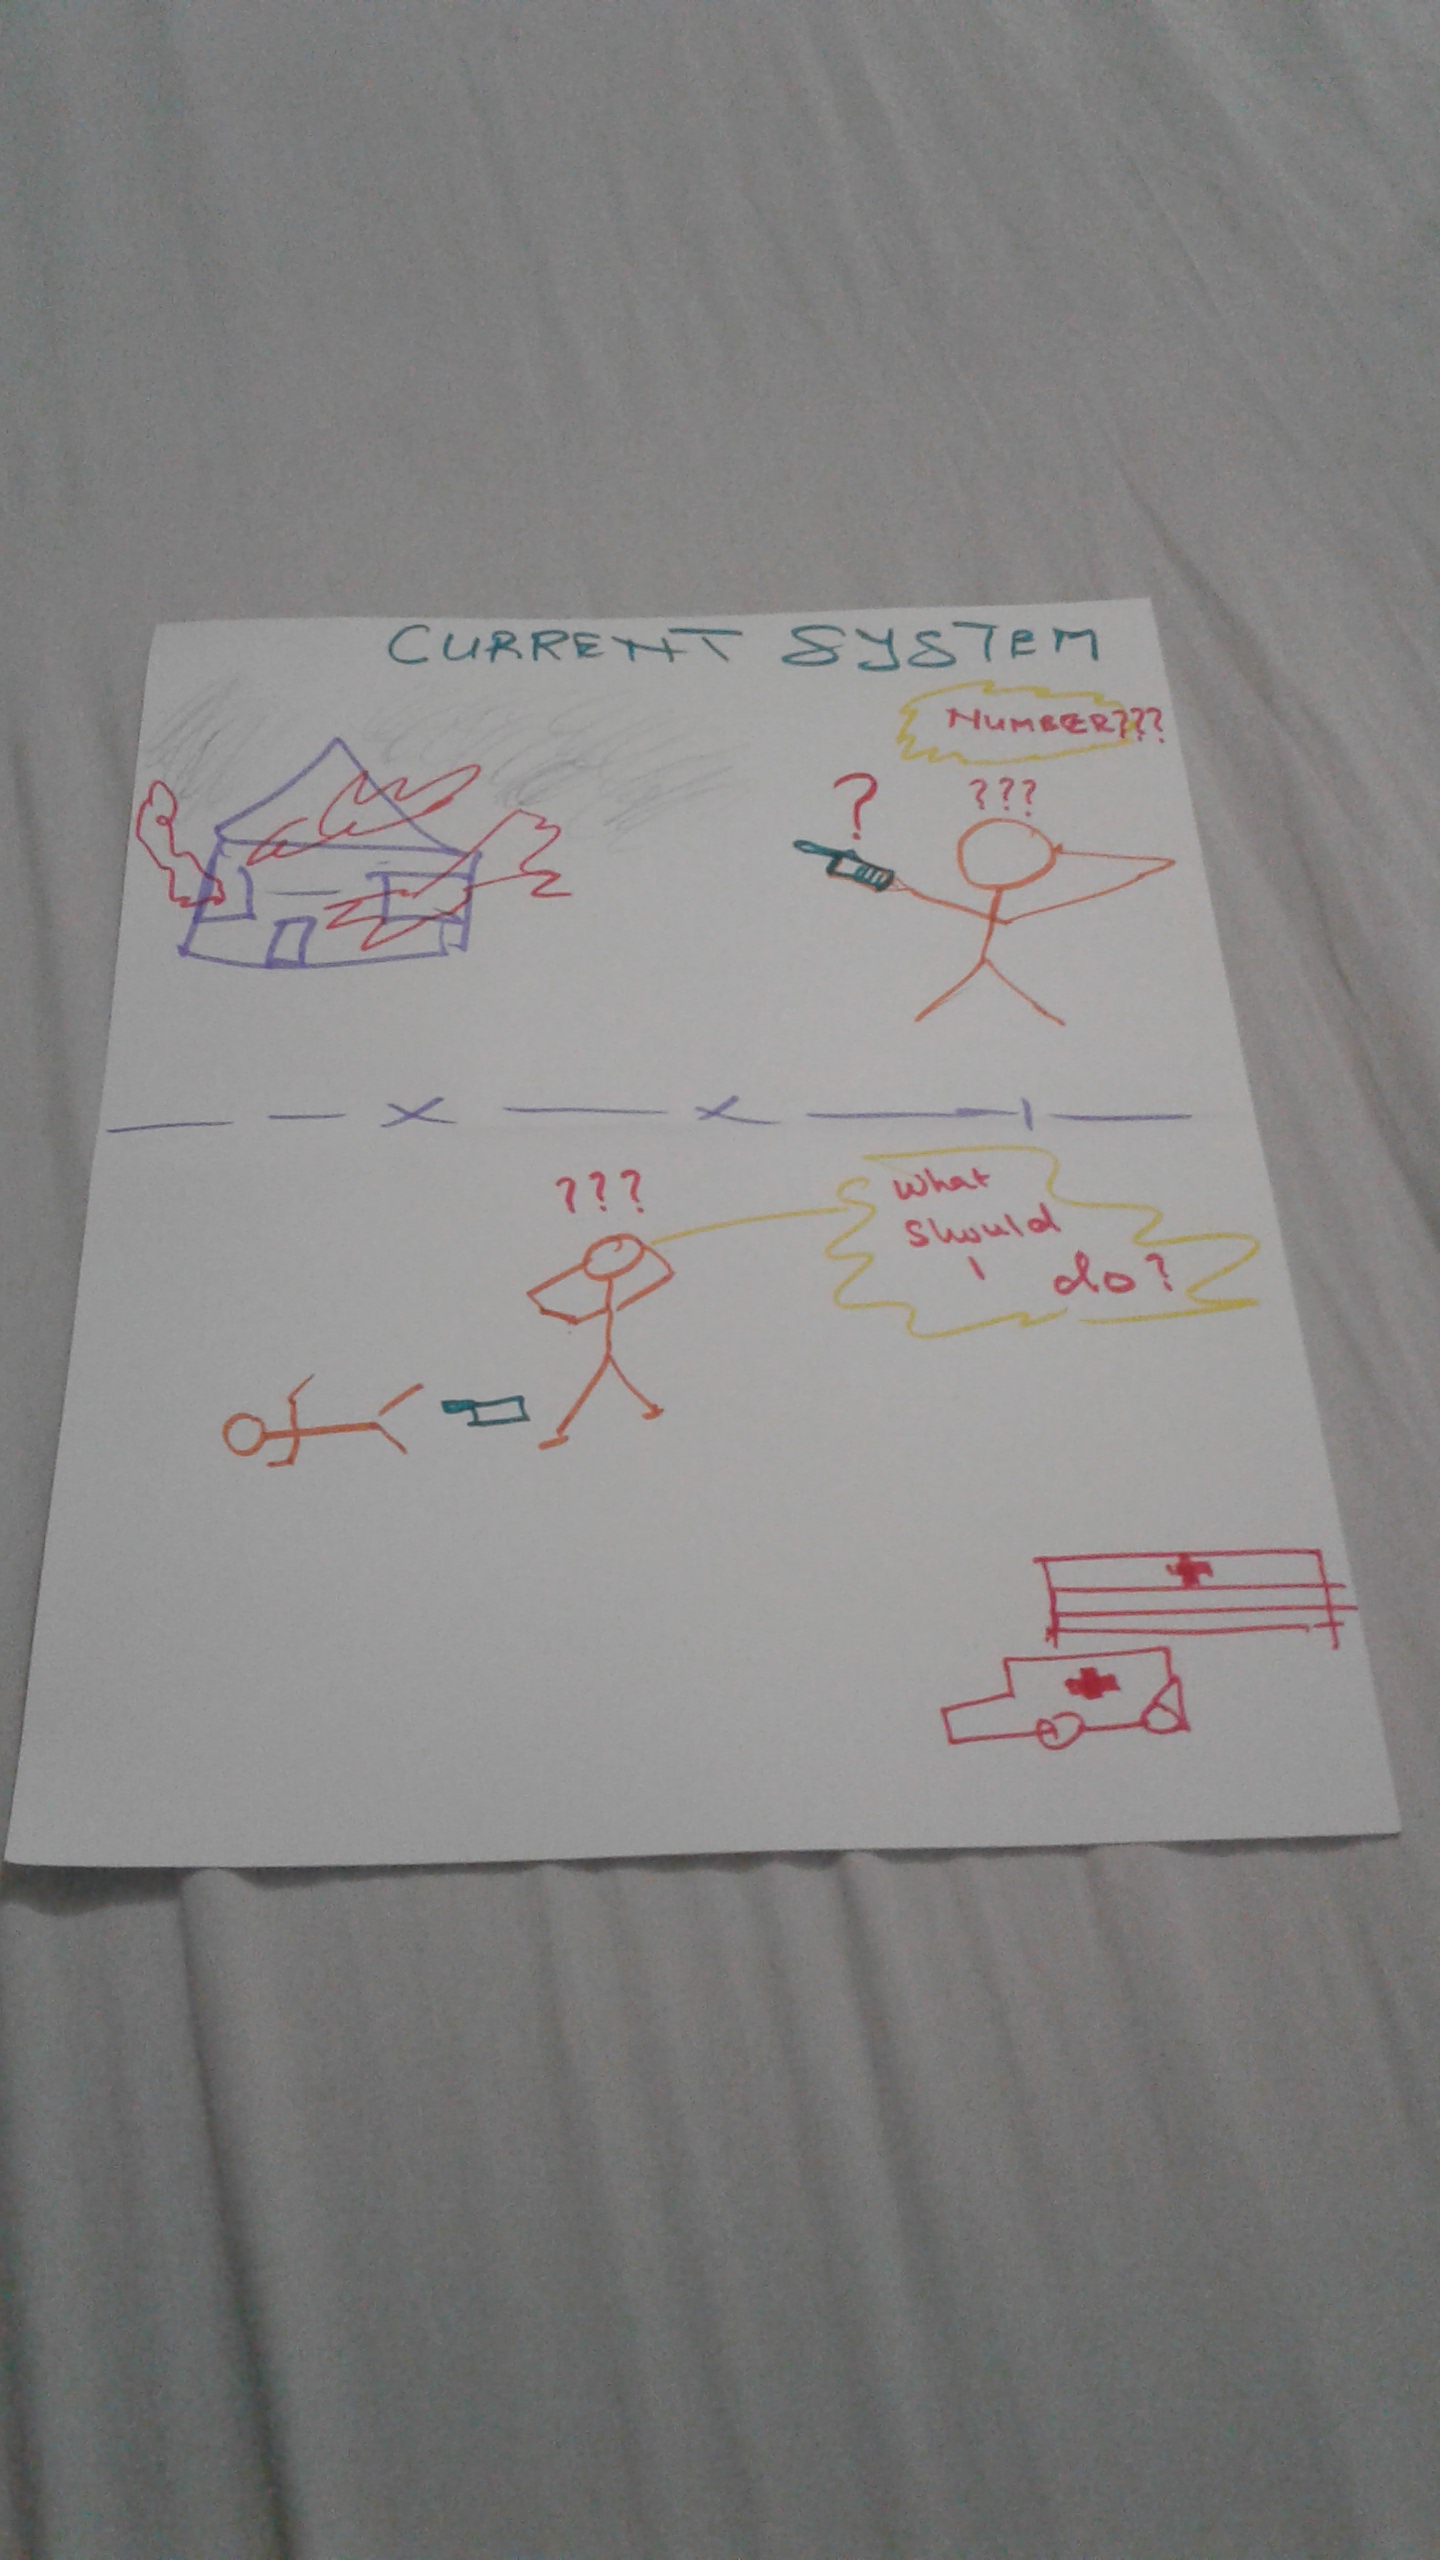 CURRENT SYSTEM
NUMBER???
?
???
???
What
should
I do?